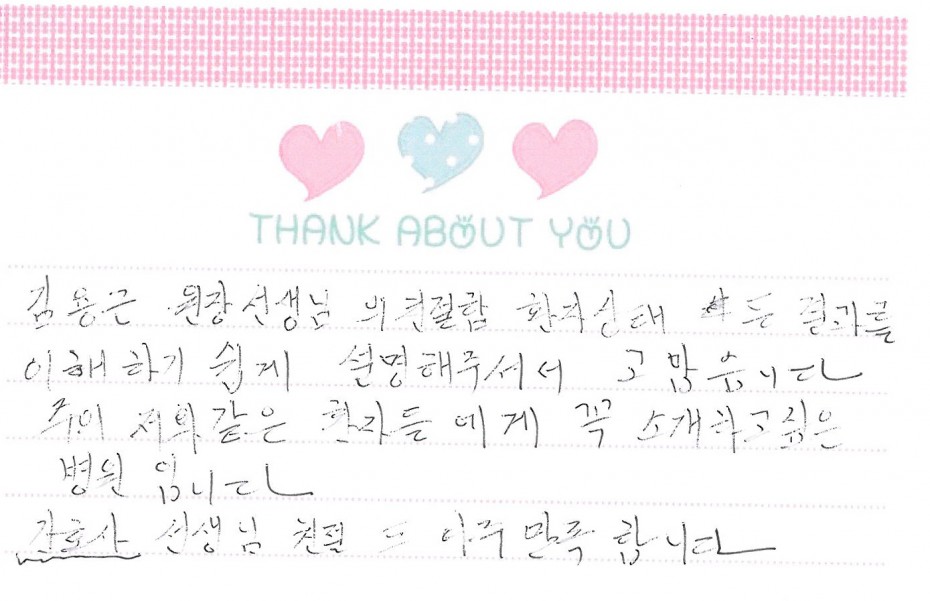 THANK ABOUT YOU
김용근 원장선생님 의 친절함 환자상태 모든 결과를
이해하기 쉽게 설명해주서서 고맙습니다
주위 저와같은 환자들 에게 꼭 소개하고싶은
병원 입니다
간호사 선생님 친절 도 아주 만족 합니다